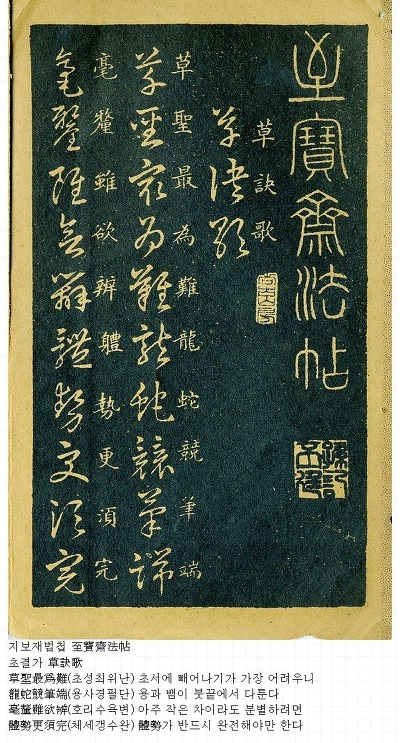 至寶齋法帖
草訣歌
草訣歌
草聖最為難龍蛇競筆端
草聖最為難龍蛇競筆端
毫釐雖欲辨體勢更湏完
毫釐雖欲辨體勢更湏完
지보재법첩 至寶齋法帖
초결가 草訣歌
草聖最爲難(초성최위난) 초서에 빼어나기가 가장 어려우니
龍蛇競筆端(용사경필단) 용과 뱀이 붓끝에서 다툰다
毫釐雖欲辨(호리수욕변) 아주 작은 차이라도 분별하려면
體勢更須完(체세갱수완) 體勢가 반드시 완전해야만 한다